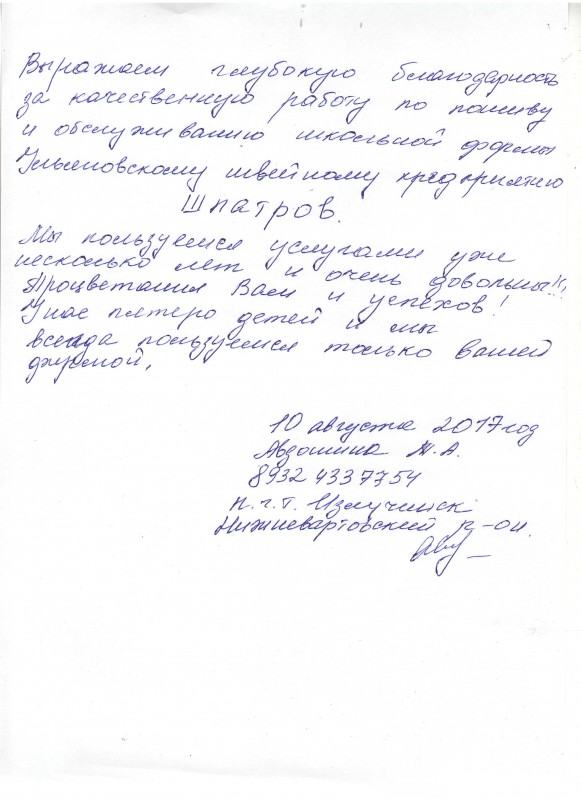 Выражаем глубокую благодарность
за качественную работу по пошиву
и обслуживанию школьной формы
Ульяновскому швейному предприятию
Шпатров.
Мы пользуемся услугами уже
несколько лет и очень довольны!!!
Процветания Вам и успехов!
У нас пятеро детей и мы
всегда пользуемся только вашей
фирмой.
10 августа 2017 год
Авдошина Т.А.
8932 4337754
п.г.т. Излучинск
Нижневартовский р-он.